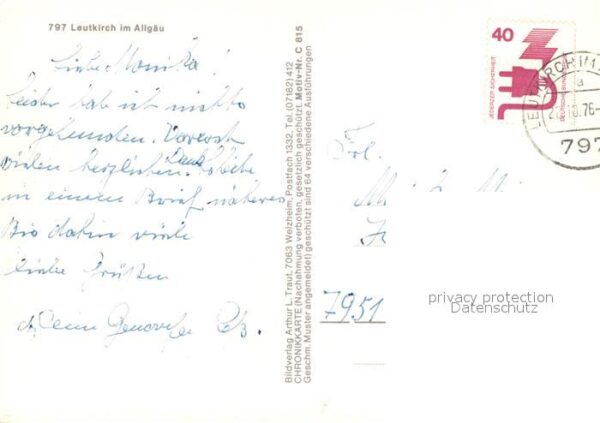 797 Leutkirch im Allgäu
Liebe Monika!
Leider hab ich nichts
vorgefunden. Vorerst
vielen herzlichen Dank. Schreibe
in einem Brief näheres
Bis dahin viele
liebe Grüßen
Deine Genovefa
Bildverlag Arthur L. Traut, 7063 Welzheim, Postfach 1332, Tel. (07182) 412
CHRONIKKARTE (Nachahmung verboten, gesetzlich geschützt. Motiv-Nr. C 815
Geschm. Muster angemeldet) geschützt sind 64 verschiedene Ausführungen
40
JEDERZEIT SICHERHEIT
DEUTSCHE BUNDESPOST
LEUTKIRCH IM
a
76-
797
Frl.
7951
privacy protection
Datenschutz